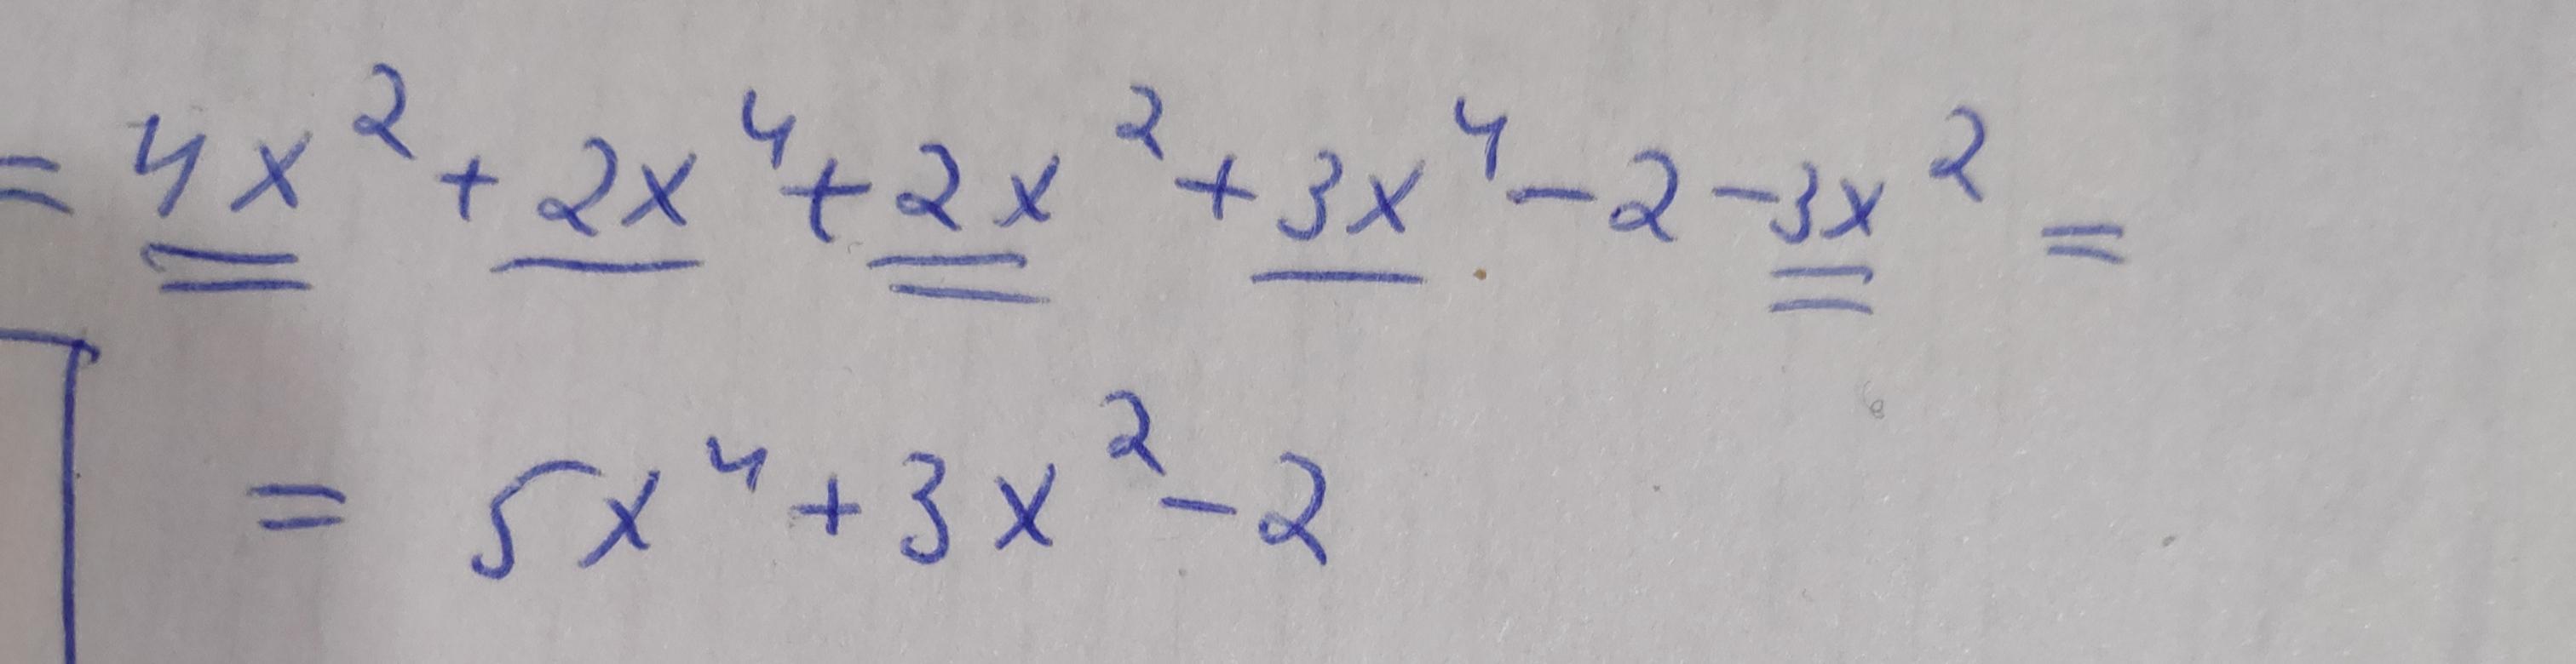 = 4x² + 2x⁴ + 2x² + 3x⁴ - 2 - 3x² =
= 5x⁴ + 3x² - 2